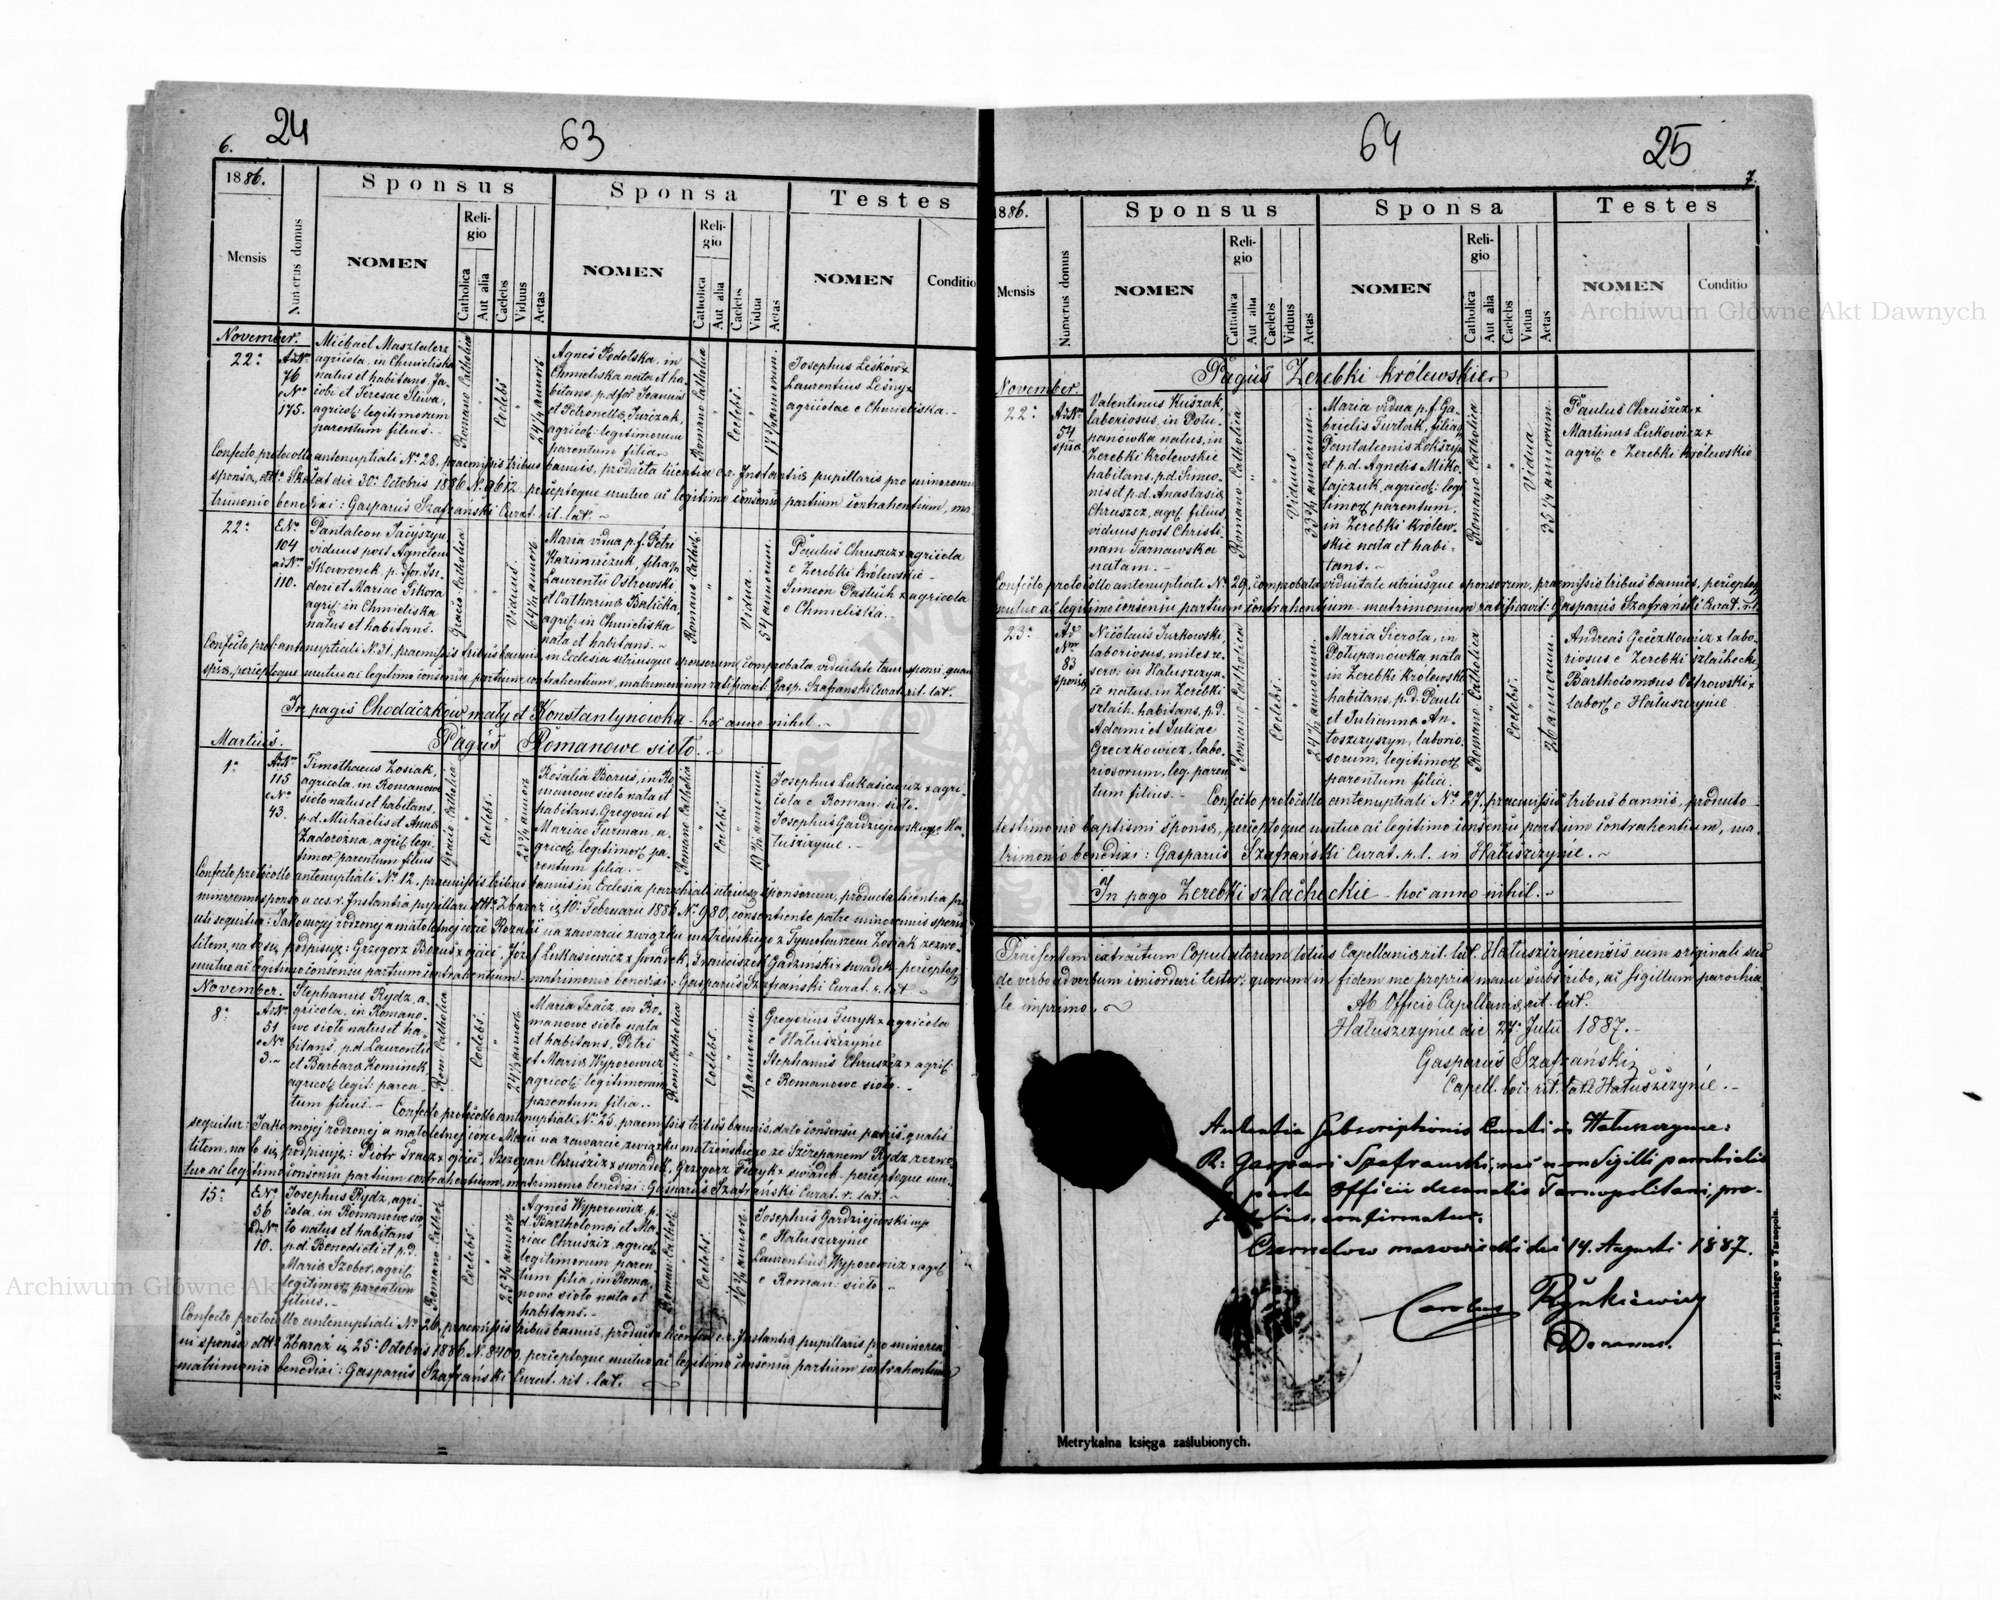 24
63
6.
1886.
Sponsus
Sponsa
Testes
Mensis
Numerus domus
NOMEN
Religio
Catholica
Aut alia
Caelebs
Viduus
Aetas
NOMEN
Religio
Catholica
Aut alia
Caelebs
Vidua
Aetas
NOMEN
Conditio
November.
22a
Ad No
76
e No
175.
Michaël Masztalerz
agricola, in Chmieliska
natus et habitans, Ja-
cobi et Teresae Śliwa,
agricol. legitimorum
parentum filius.-
Romano Catholica
Coelebs
24 1/2 annor.
Agnes Podolska, in
Chmieliska nata et ha-
bitans, p.d. Joannis
et Petronellae Jurczak,
agricol. legitimorum
parentum filia
Romano Catholica
Coelebs.
annorum.
Josephus Leśków x
Laurentius Leśny x
agricolae e Chmieliska.-
Confecto protocollo antenuptiali No 28, praemissis tribus bannis, producta licentia c.r. Instantiae pupillaris pro minorenni
sponsa, dtto Skałat die 30a Octobris 1886 N. 9612 perceptoque mutuo ac legitimo consensu partium contrahentium, ma-
trimonio benedixi: Gasparus Szafrański Curat. rit. lat. ~
22a
E No
104
ad No
110.
Pantaleon Jacyszyn,
viduus post Agnetem
Skowronek, p.d. Isi-
dori et Mariae Sikora
agric. in Chmieliska
natus et habitans.
Graeco Catholica
Viduus.
annor.
Maria vidua p. f. Petri
Kazimirczuk, filia
Laurentii Ostrowski
et Catharinae Balicka,
agric. in Chmieliska
nata et habitans.-
Romano Cathol.
Vidua.
54 annorum.
Paulus Chruszcz x agricola
e Zerebki Królewskie -
Simeon Pastuch x agricola
e Chmieliska.
Confecto prot. antenuptiali N. 31, praemissis tribus bannis, in Ecclesia utriusque sponsorum, comprobata viduitate tam sponsi, quam
sponsae, perceptoque mutuo ac legitimo consensu partium contrahentium, matrimonium ratificavit Gasp. Szafrański Curat. rit. lat.
In pagis Chodaczków mały et Konstantynówka - hoc anno nihil. ~
Pagus Romanowe sioło. ~
Martius.
1a
Ad No
115
e No
43.
Timothaeus Zosiak,
agricola, in Romanowe
sioło natus et habitans,
p.d. Michaelis et Annae
Zadorożna, agric. legi-
timor. parentum filius
Graeco Catholica
Coelebs.
23 1/2 annor.
Rosalia Borus, in Ro-
manowe sioło nata et
habitans, Gregorii et
Mariae Furman, a-
gricol. legitimor. pa-
rentum filia.-
Romano Catholica
Coelebs
annorum.
Josephus Łukasiewicz x agri-
cola e Roman. sioło.
Josephus Gardziejewski mp e Ha-
łuszczyńce.-
Confecto protocollo antenuptiali No 12, praemissis tribus bannis in Ecclesia parochiali utriusq. sponsorum, producta licentia pro
minorenni sponsa a ces. r. Instantia pupillari dtto Zbaraż 10a Februarii 1886 No 980, consentiente patre minorennis sponsae
uti sequitur: Jako mojej rodzonej a małoletniej córce Rozalii na zawarcie związku małżeńskiego z Tymoteuszem Zosiak zezwo-
liłem, na to się podpisuję: Grzegorz Borus x ojciec, Józef Łukasiewicz x świadek, Franciszek Gadziński x świadek, perceptoq.
mutuo ac legitimo consensu partium contrahentium - matrimonio benedixi: Gasparus Szafrański Curat. r. lat. -
November.
8a
Ad No
51
e No
3.-
Stephanus Rydz, a-
gricola, in Romano-
we sioło natus et ha-
bitans, p.d. Laurentii
et Barbarae Kominek
agricol. legit. paren-
tum filius.-
Rom. Catholica
Coelebs.
24 1/2 annor.
Maria Tracz, in Ro-
manowe sioło nata
et habitans, Petri
et Mariae Wyporowicz
agricol. legitimorum
parentum filia.-
Rom. Catholica
Coelebs.
18 annorum.
Gregorius Furyk x agricola
e Hałuszczyńce
Stephanus Chruszcz x agric.
e Romanowe sioło. -
Confecto protocollo antenuptiali No 25, praemissis tribus bannis, dato consensu patris, qualis
sequitur: Jako mojej rodzonej a małoletniej córce Maryi na zawarcie związku małżeńskiego ze Szczepanem Rydz zezwo-
liłem, na to się podpisuję: Piotr Tracz x ojciec, Szczepan Chruszcz x świadek, Grzegorz Furyk x świadek - perceptoque mu-
tuo ac legitimo consensu partium contrahentium, matrimonio benedixi: Gasparus Szafrański Curat. r. lat. ~
15a
E No
56
Ad No
10.
Josephus Rydz, agri-
cola, in Romanowe sio-
ło natus et habitans
p.d. Benedicti et p.d.
Mariae Szober, agric.
legitimor. parentum
filius.-
Romano Cathol.
Coelebs
annor.
Agnes Wyporowicz, p.
d. Bartholomei et Ma-
riae Chruszcz, agricol.
legitimorum paren-
tum filia, in Roma-
nowe sioło nata et
habitans.-
Roman. Cathol.
Coelebs
annor.
Josephus Gardziejewski mp
e Hałuszczyńce
Laurentius Wyporowicz x agric.
e Roman. sioło -
Confecto protocollo antenuptiali No 26, praemissis tribus bannis, producta licentia c.r. Instantiae pupillaris pro minoren-
ni sponsa dtto Zbaraż 25a Octobris 1886 N. 8400, perceptoque mutuo ac legitimo consensu partium contrahentium
matrimonio benedixi: Gasparus Szafrański Curat. rit. lat. ~
64
25
7.
1886.
Sponsus
Sponsa
Testes
Mensis
Numerus domus
NOMEN
Religio
Catholica
Aut alia
Caelebs
Viduus
Aetas
NOMEN
Religio
Catholica
Aut alia
Caelebs
Vidua
Aetas
NOMEN
Conditio
Pagus Zerebki królewskie.
November.
22a
Ad No
54
Valentinus Kuszak,
laboriosus, in Potu-
panówka natus, in
Zerebki Królewskie
habitans, p.d. Simeo-
nis et p.d. Anastasiae
Chruszcz, agric. filius,
viduus post Christi-
nam Tarnawska
natam.-
Romano Catholica
Viduus.
annorum.
Maria vidua p.f. Ga-
brielis Furtak, filia
Pantaleonis Łokszyn
et p.d. Agnetis Miko-
łajczuk, agricol. legi-
timor. parentum,
in Zerebki Królew-
skie nata et habi-
tans.-
Romano Catholica
Vidua
annorum.
Paulus Chruszcz x
Martinus Lirkowicz x
agric. e Zerebki Królewskie
Confecto protocollo antenuptiali No 29, comprobata viduitate utriusque sponsorum, praemissis tribus bannis, perceptoq.
mutuo ac legitimo consensu partium contrahentium - matrimonium ratificavit: Gasparus Szafrański Curat. r. l.
23a
Ad
Nrm
83
sponsae
Nicolaus Jurkowski,
laboriosus, miles re-
serv. in Hałuszczyń-
ce natus, in Zerebki
szlach. habitans, p.d.
Adami et Juliae
Greczkowicz, labo-
riosorum, leg. paren-
tum filius.-
Romano Catholica
Coelebs.
annorum.
Maria Sierota, in
Potupanówka nata
in Zerebki Królewskie
habitans, p.d. Pauli
et Julianna An-
toszczyszyn, laborio-
sorum, legitimor.
parentum filia.
Romano Catholica
Coelebs.
26 annorum.
Andreas Greczkowicz x labo-
riosus e Zerebki szlacheckie
Bartholomaeus Ostrowski x
labor. e Hałuszczyńce
Confecto protocollo antenuptiali No 27, praemissis tribus bannis, producto
testimonio baptismi sponsae, perceptoque mutuo ac legitimo consensu partium contrahentium, ma-
trimonio benedixi: Gasparus Szafrański Curat. r. l. in Hałuszczyńce. ~
In pago Zerebki szlacheckie - hoc anno nihil. ~
Praesentem extractum Copulatorum totius Capellaniae rit. lat. Hałuszczyncensis cum originali suo
de verbo ad verbum concordari testor: quorum in fidem me propria manu subscribo, ac sigillum parochia-
le imprimo. ~
Ab Officio Capellaniae rit. lat.
Hałuszczyńce die 27a Julii 1887.-
Gasparus Szafrański
Capell. loc. rit. lat. Hałuszczyńce.-
Autentia Subscriptionis Curati in Hałuszczynce:
R: Gaspari Szafranski, nec non Sigilli parochialis
parte Officii decanalis Tarnopoliensis, pro-
confirmatur.
Czernelow mazowiecki die 14. Augusti 1887.
Carolus Rynkiewicz
Decanus.
Metrykalna księga zaślubionych.
Z drukarni J. Pawłowskiego w Tarnopolu.
Archiwum Główne Akt Dawnych
Archiwum Główne Akt Dawnych